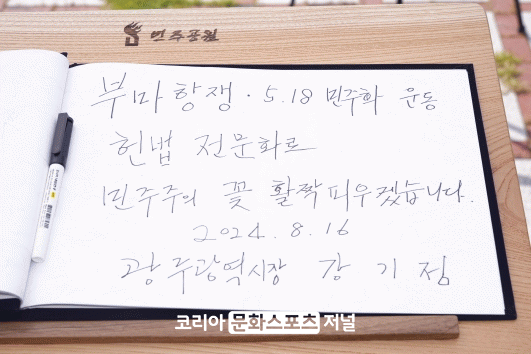 민주공원
부마항쟁·5.18 민주화 운동
헌법 전문화로
민주주의 꽃 활짝 피우겠습니다.
2024. 8. 16
광주광역시장 강 기 정
코리아 문화스포츠 저널